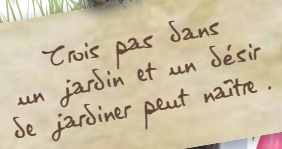 Trois pas dans
un jardin et un désir
de jardiner peut naître.